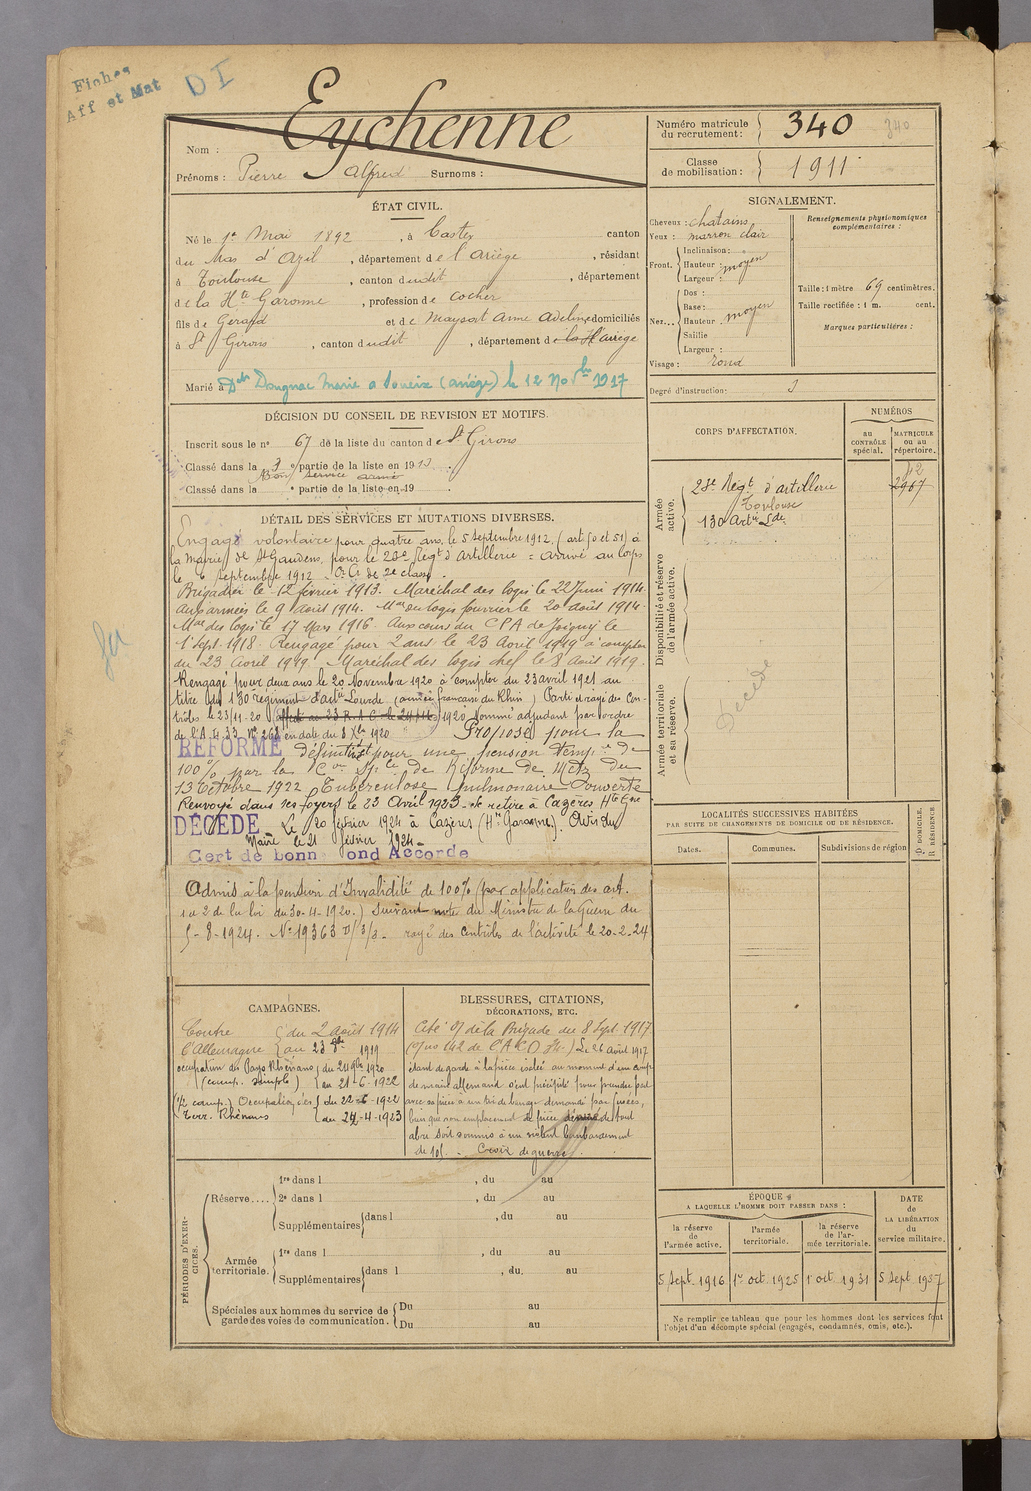 Fiches
Aff et Mat
DI
Nom : Eychenne
Prénoms : Pierre Alfred Surnoms :
Numéro matricule du recrutement : 340
340
Classe de mobilisation : 1911
ÉTAT CIVIL.
Né le 1er Mai 1892, à Castex canton
du Mas d'Azil, département de l'Ariège, résidant
à Toulouse, canton dudit, département
de la Hte Garonne, profession de Cocher
fils de Gérard et de Maysort Anne Adeline domiciliés
à St Girons, canton dudit, département de la H ariège
Marié à Dlle Dougnac Marie a Soueix (ariège) le 12 Novbre 1917
SIGNALEMENT.
Cheveux : chatains
Yeux : marron clair
Front. Inclinaison :
Hauteur : moyen
Largeur :
Nez... Dos :
Base :
Hauteur moyen
Saillie
Largeur :
Visage : rond
Renseignements physionomiques complémentaires :
Taille : 1 mètre 69 centimètres.
Taille rectifiée : 1 m. cent.
Marques particulières :
Degré d'instruction : 3
DÉCISION DU CONSEIL DE REVISION ET MOTIFS.
Inscrit sous le no 67 de la liste du canton de St Girons
Classé dans la 3e partie de la liste en 1913
Bon service armé
Classé dans la e partie de la liste en 19 .
CORPS D'AFFECTATION.
NUMÉROS
au CONTRÔLE spécial.
MATRICULE ou au répertoire.
Armée active.
23e Régt d'artillerie
Toulouse
42
2967
130 Artie Lde
Disponibilité et réserve de l'armée active.
Armée territoriale et sa réserve.
Décédé
DÉTAIL DES SERVICES ET MUTATIONS DIVERSES.
Engagé volontaire pour quatre ans, le 5 septembre 1912, (art. 50 et 51) à
la Mairie de St Gaudens, pour le 23e Régt d'Artillerie = arrivé au Corps
le 6 septembre 1912 - Ct Cr de 2e classe
Brigadier le 12 février 1913. Maréchal des logis le 22 Juin 1914.
Aux armées le 9 août 1914. Mal des logis fourrier le 20 août 1914.
Mal des logis le 17 Mars 1916. Aux cours du CPA de Joigny le
1er Sept. 1918. Rengagé pour 2 ans le 23 Avril 1919 à compter
du 23 Avril 1919. Maréchal des logis chef le 8 août 1919.
Rengagé pour deux ans le 20 Novembre 1920 à compter du 23 avril 1921 au
titre du 130 régiment d'artie Lourde (armée française du Rhin) Parti et rayé des con-
trôles le 23/11-20 1920 nommé adjudant par ordre
de l'A.G. 33 No 268 en date du 8 Xbre 1920. Proposé pour la
REFORME Définitive et pour une pension tempre de
100% par la Con Sple de Réforme de Metz du
13 Octobre 1922 Tuberculose pulmonaire ouverte
Renvoyé dans ses foyers le 23 Avril 1923. Se retire à Cazères Hte Gne
DÉCÉDÉ Le 20 février 1924 à Cazères (Hte Garonne). Avis du
Maire le 21 février 1924.
Cert de bonn ond Accorde
Admis à la pension d'Invalidité de 100% (par application des art.
1 et 2 de la loi du 30-4-1920.) Suivant note du Ministre de la Guerre du
5-8-1924. No 19363 rayé des Contrôles de l'activité le 20-2-24
LOCALITÉS SUCCESSIVES HABITÉES
PAR SUITE DE CHANGEMENTS DE DOMICILE OU DE RÉSIDENCE.
Dates. Communes. Subdivisions de région
D DOMICILE.
R RÉSIDENCE.
CAMPAGNES.
Contre l'Allemagne du 2 août 1914
au 23 8bre 1919
occupation des Pays Rhénans du 24 9bre 1920
(camp. simple) au 21-6-1922
(1/2 camp.) Occupation des du 22-6-1922
Terr. Rhénans au 24-4-1923
BLESSURES, CITATIONS, DÉCORATIONS, ETC.
Cité O/ de la Brigade du 8 Sept. 1917
Le 26 Août 1917
étant de garde à la pièce isolée au moment d'un coup
de main allemand s'est précipité pour prendre part
avec sa pièce à un tir de barrage demandé par fusées,
bien que son emplacement de pièce dénué de tout
abri soit soumis à un violent bombardement
de 105. - Croix de guerre.
PÉRIODES D'EXERCICES.
Réserve.... 1re dans l , du au
2e dans l , du au
Supplémentaires dans l , du au
Armée territoriale. 1re dans l , du au
Supplémentaires dans l , du. au
Spéciales aux hommes du service de garde des voies de communication. Du au
Du au
ÉPOQUE
A LAQUELLE L'HOMME DOIT PASSER DANS :
la réserve de l'armée active.
l'armée territoriale.
la réserve de l'armée territoriale.
DATE de LA LIBÉRATION du service militaire.
5 Sept. 1916
1er oct. 1925
1er oct. 1931
5 Sept 1937
Ne remplir ce tableau que pour les hommes dont les services font
l'objet d'un décompte spécial (engagés, condamnés, omis, etc.).